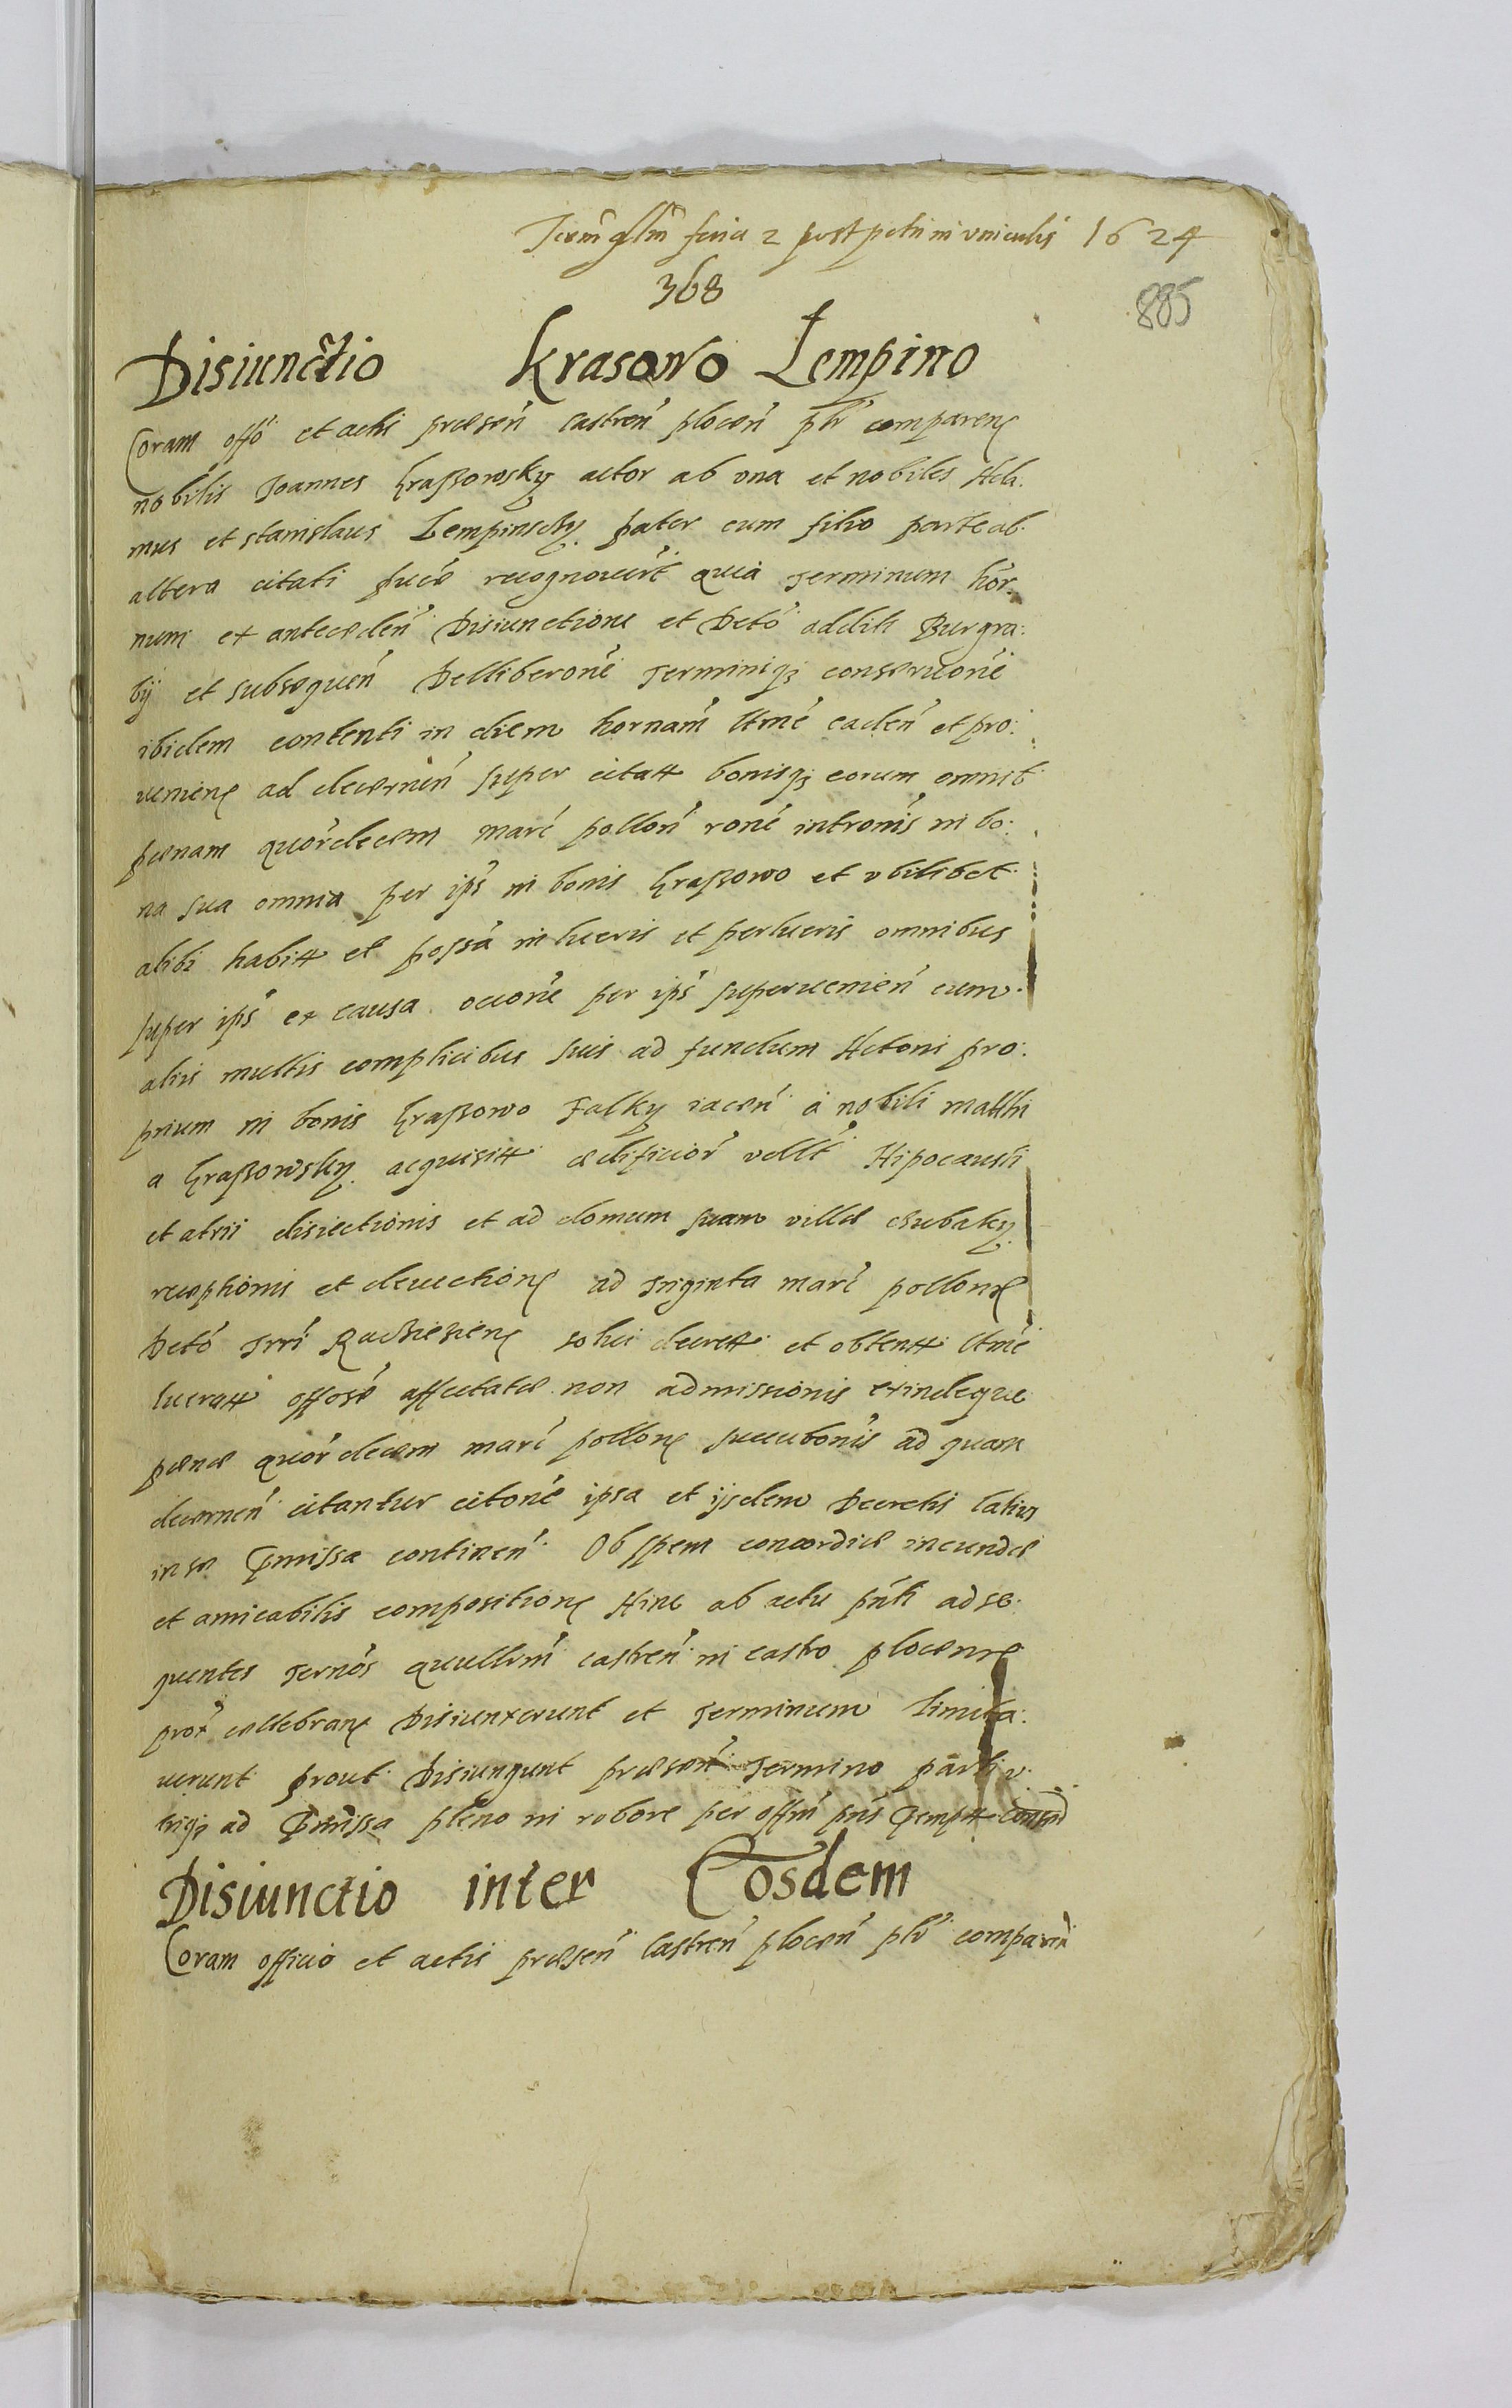 Term gñlm feria 2 post petri in vinculis 1624
368
885
Disiunctio Krasowo Lempino
Coram offo et actis præsen̄ castren̄ plocen̄ plr̄ comparen̄
nobilis Joannes Kraszowsky actor ab una et nobiles Ada:
mus et stanislaus Lempinsky pater cum filio parte ab
altera citati recognouer̄t quia Terminum hor:
num ex anteceden̄ Disiunctione et Deto addits Burgra:
bij et subsequen̄ Delliberone Terminiq conseruone
ibidem contenti in diem hornam ltme caden̄ et pro:
uenien̄ ad decernen̄ super citatt bonisq eorum omnib
pænam quordecem marc pollon̄ rone intromis in bo:
na sua omnia per ips in bonis Kraszowo et vbilibet
alibi habitt et possa in lucris et perlucris omnibus
super ips ex causa occone per ips superuenien̄ cum
aliis multis complicibus suis ad fundum Actoris pro:
prium in bonis Kraszowo Falky iacen̄ a nobili matthi
a Kraszowsky acquisitt ædificior̄ vellt Hipocausti
et atrii disiectionis et ad domum suam villæ Chubaky
receptionis et deuection̄ ad Triginta marc pollon̄
Deto Trri Raczieszien̄ solui decrett et obtentt ltme
lucratt offose affectatæ non admissionis exindeque
pænæ quordecem marc pollon̄ succubonis ad quam
decernen̄ citantur citone ipsa et ijsdem Decretis latius
in se præmissa continen̄ Ob spem concordiæ ineundæ
et amicabilis composition̄ Hinc ab actu pn̄ti ad se:
quentes Ternos quærllrm castren̄ in castro plocensi
prox cellebran̄ Disiunxerunt et Terminum limita:
uerunt prout Disiungunt præsen̄ Termino partiv
trisq ad præmissa pleno in robore per offm pn̄s semptt conser̄
Disiunctio inter Eosdem
Coram officio et actis præsen̄ Castren̄ plocen̄ plr̄ comparen̄